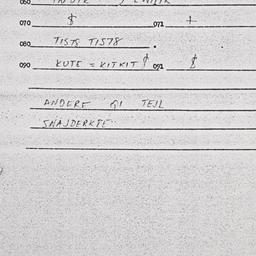 060
070 $ 071 +
080 TISTS TIS78 .
090 KUTE = KITKIT $ 091 $
ANDERE GI TEJL
SNAJDERKPE